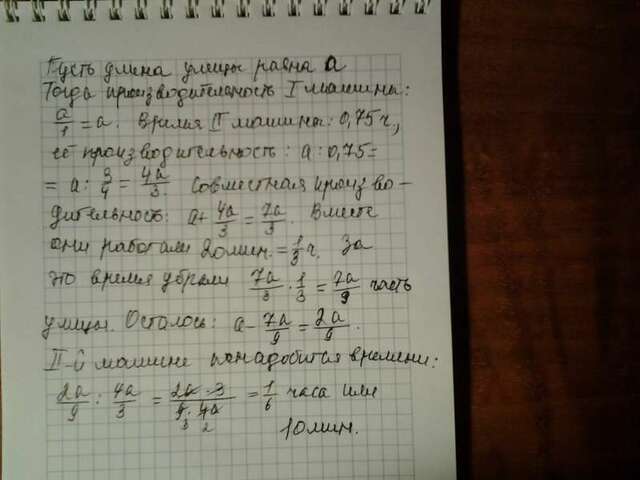 Пусть длина улицы равна a
Тогда производительность I машины:
a/1 = a. Время II машины: 0,75 ч,
её производительность: a : 0,75 =
= a : 3/4 = 4a/3. Совместная произво-
дительность: a + 4a/3 = 7a/3. Вместе
они работали 20 мин. = 1/3 ч. За
это время убрали 7a/3 · 1/3 = 7a/9 часть
улицы. Осталось: a - 7a/9 = 2a/9.
II-й машине понадобится времени:
2a/9 : 4a/3 = 2a · 3/9 · 4a = 1/6 часа или
3 2
10 мин.